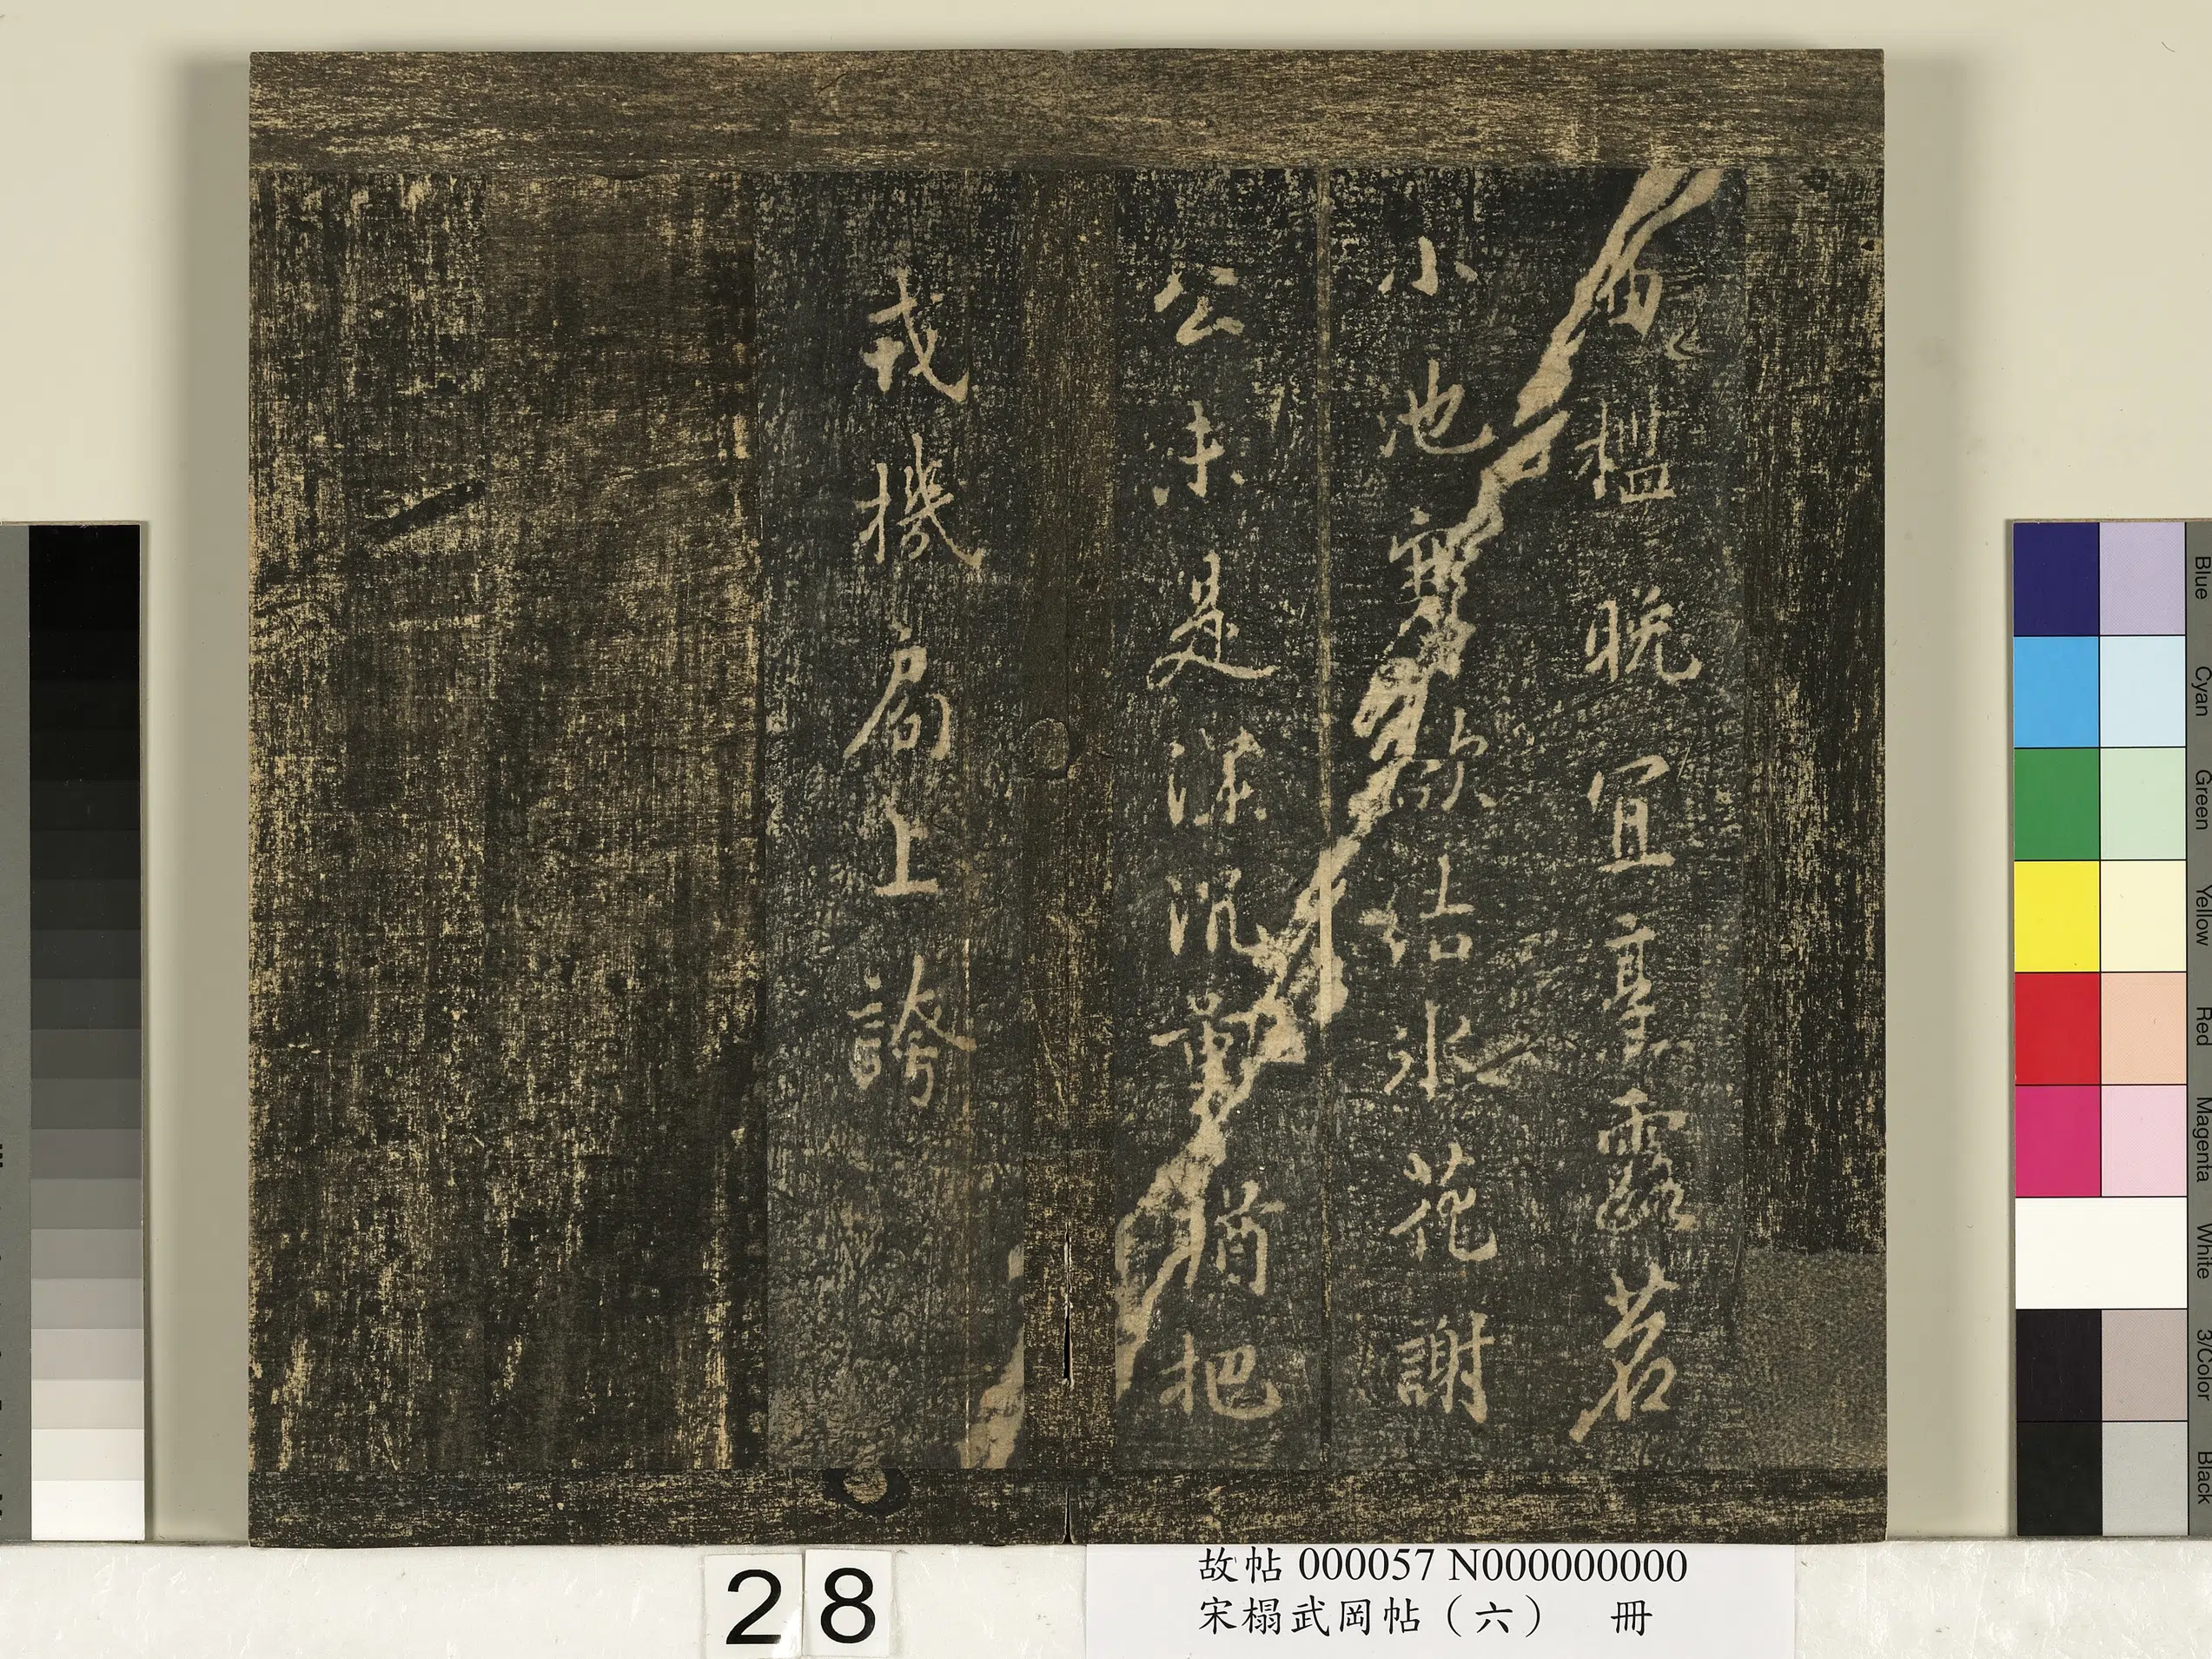 曲檻晚宜烹露茗
小池寒欲結冰花謝
公未是深沉量猶把
戎機局上誇
28
故帖 000057 N000000000
宋榻武岡帖（六） 冊
Blue
Cyan
Green
Yellow
Red
Magenta
White
3/Color
Black